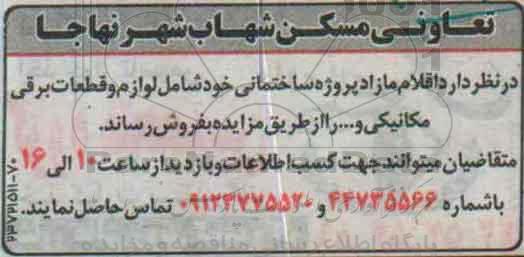 تعاونی مسکن شهاب شهر نهاجا
در نظر دارد اقلام مازاد پروژه ساختمانی خود شامل لوازم و قطعات برقی
مکانیکی و... را از طریق مزایده بفروش رساند.
متقاضیان میتوانند جهت کسب اطلاعات و بازدید از ساعت ۱۰ الی ۱۶
باشماره ۴۴۷۳۵۵۶۶ و ۰۹۱۲۴۷۷۵۵۲۰ تماس حاصل نمایند.